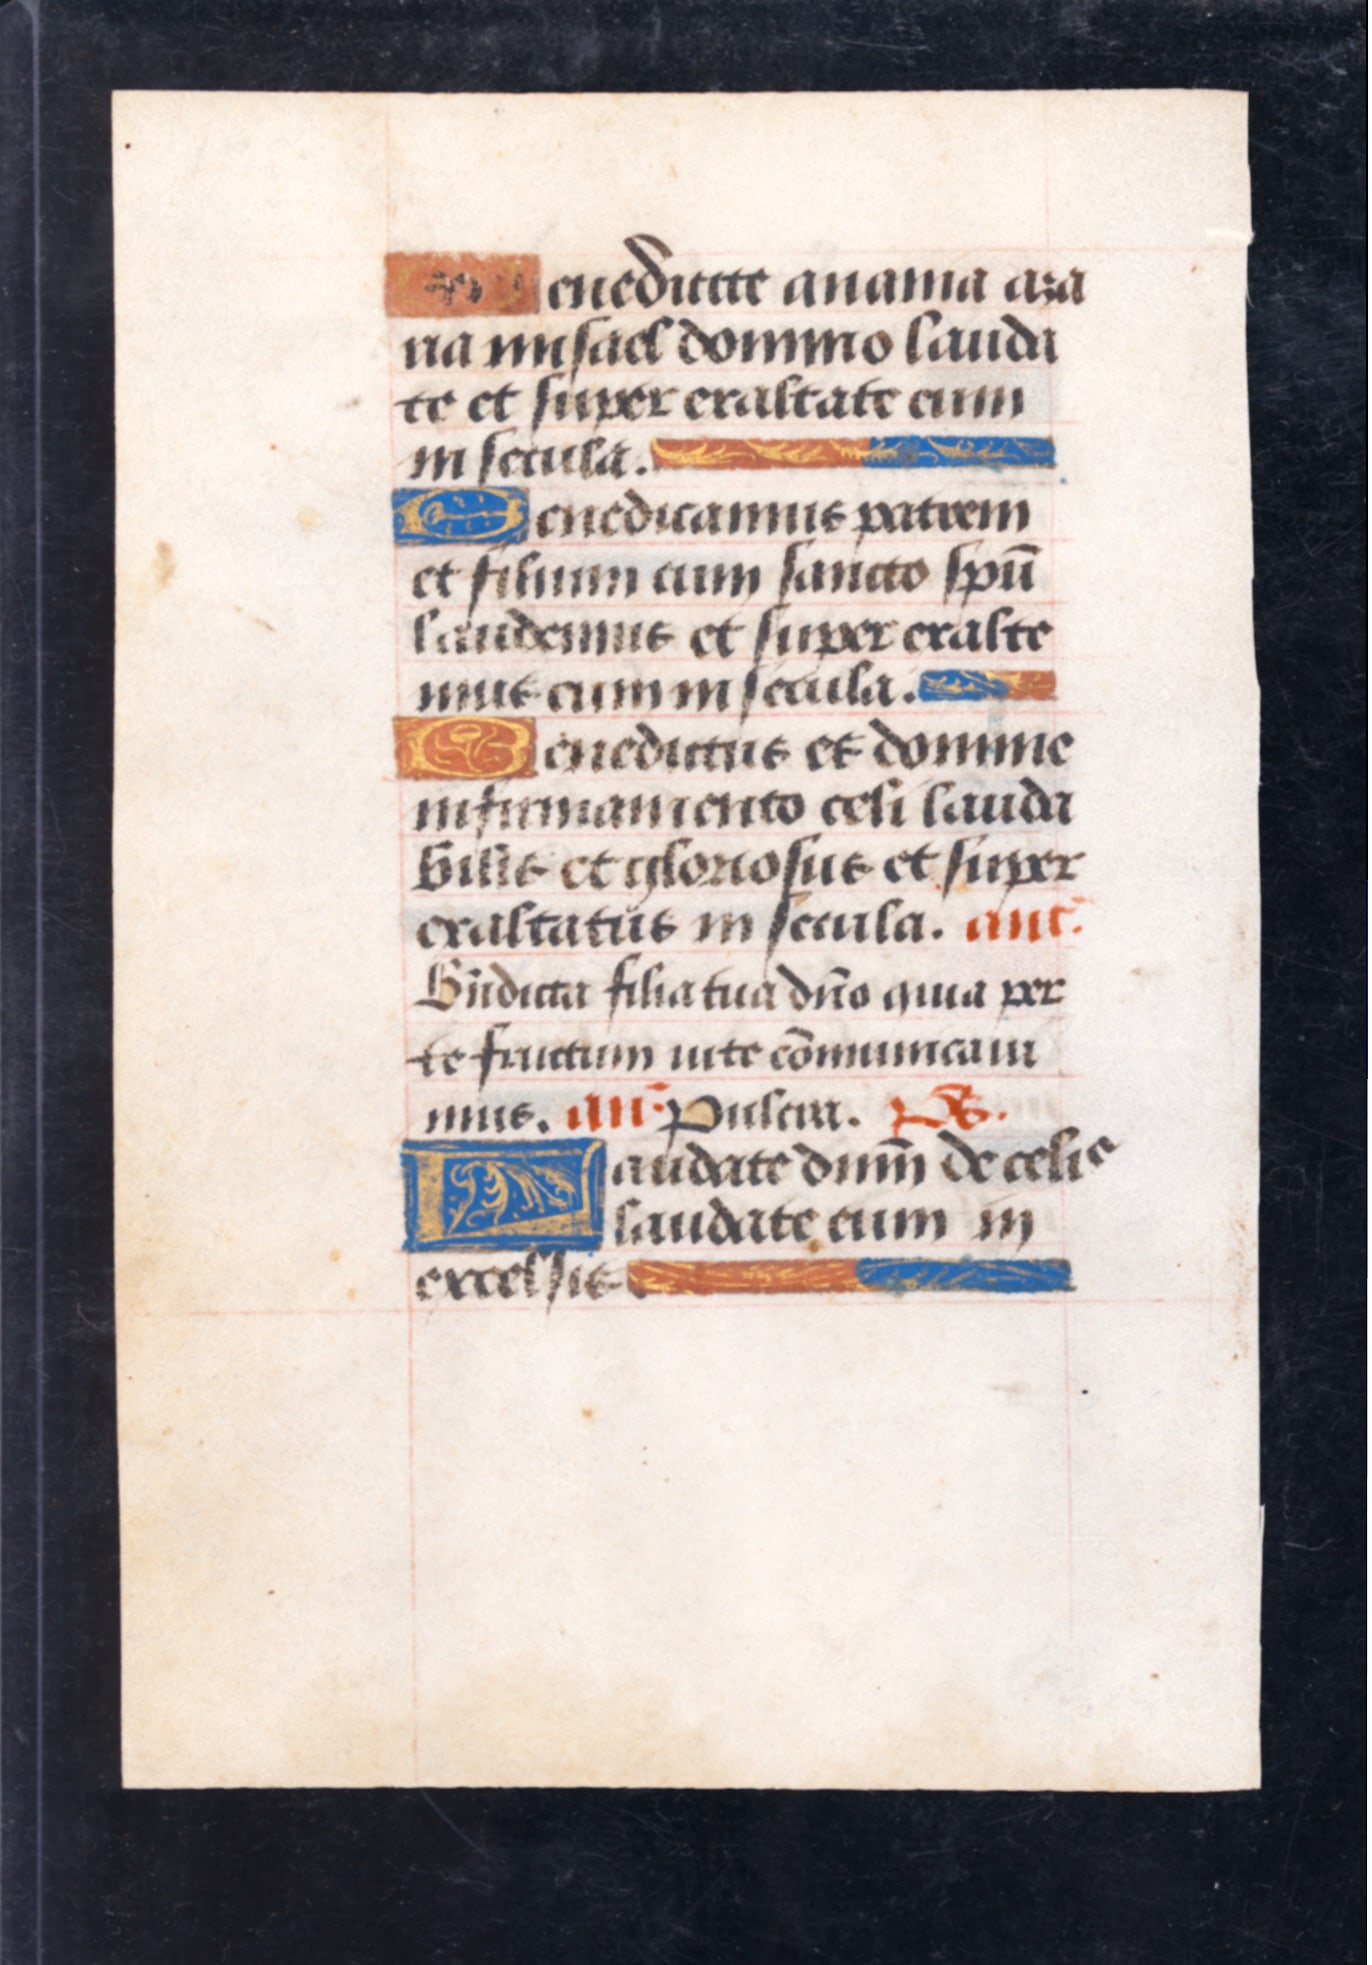 Benedicite anania aza
ria misael domino lauda
te et super exaltate eum
in secula.
Benedicamus patrem
et filium cum sancto spũ
laudemus et super exalte
mus eum in secula.
Benedictus es domine
in firmamento celi lauda
bilis et gloriosus et super
exaltatus in secula. ant.
Bñdicta filia tua dño quia per
te fructum vite cõmunicavi
mus. añ. Pulcra. Ps.
Laudate dnm̃ de celis
laudate eum in
excelsis